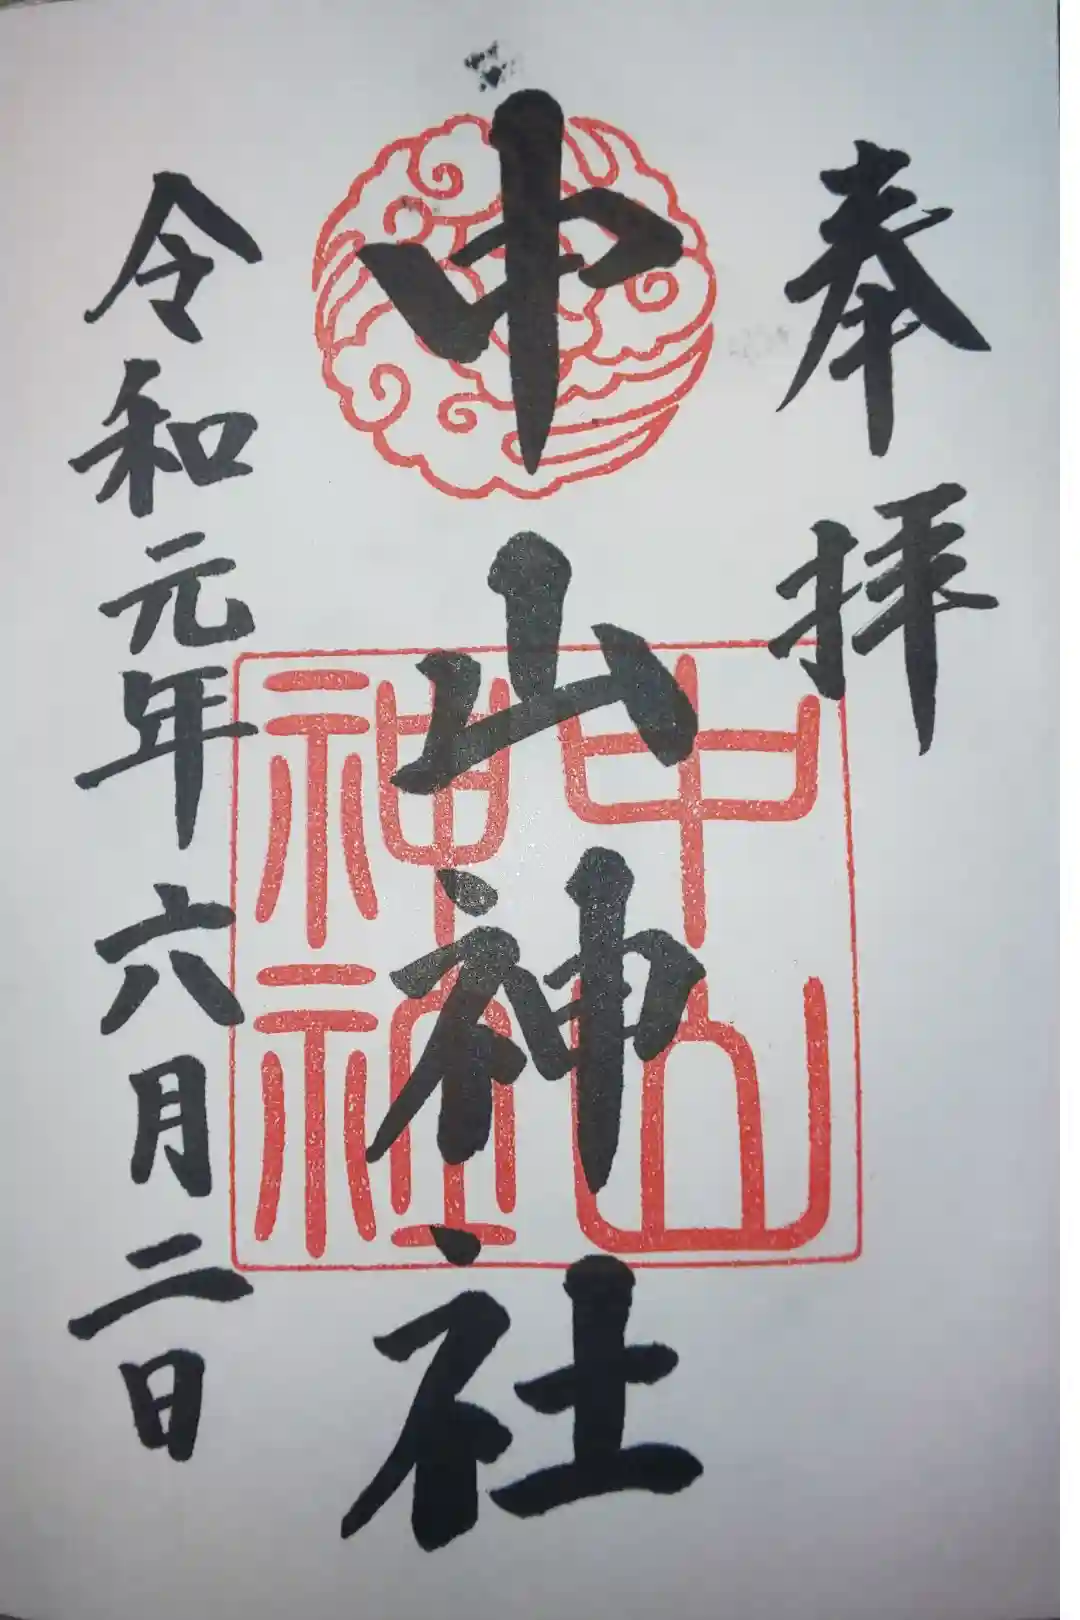 奉拝
中山神社
中山
神社
令和元年六月二日